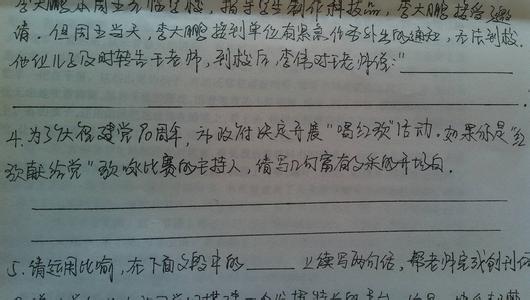 李大鹏本周五来临学校，指导学生制作科技品，李大鹏接受了邀
请。但周五当天，李大鹏接到单位有紧急任务外出的通知，无法到校。
他让儿子及时转告王老师，到校后，李伟对王老师说："
4.为了庆祝建党90周年，市政府决定开展"唱红歌"活动。如果你是"红
歌献给党"歌咏比赛的主持人，请写几句富有文采的开场白。
5.请运用比喻，在下面文段中的____上续写两句话，帮老师完成创刊